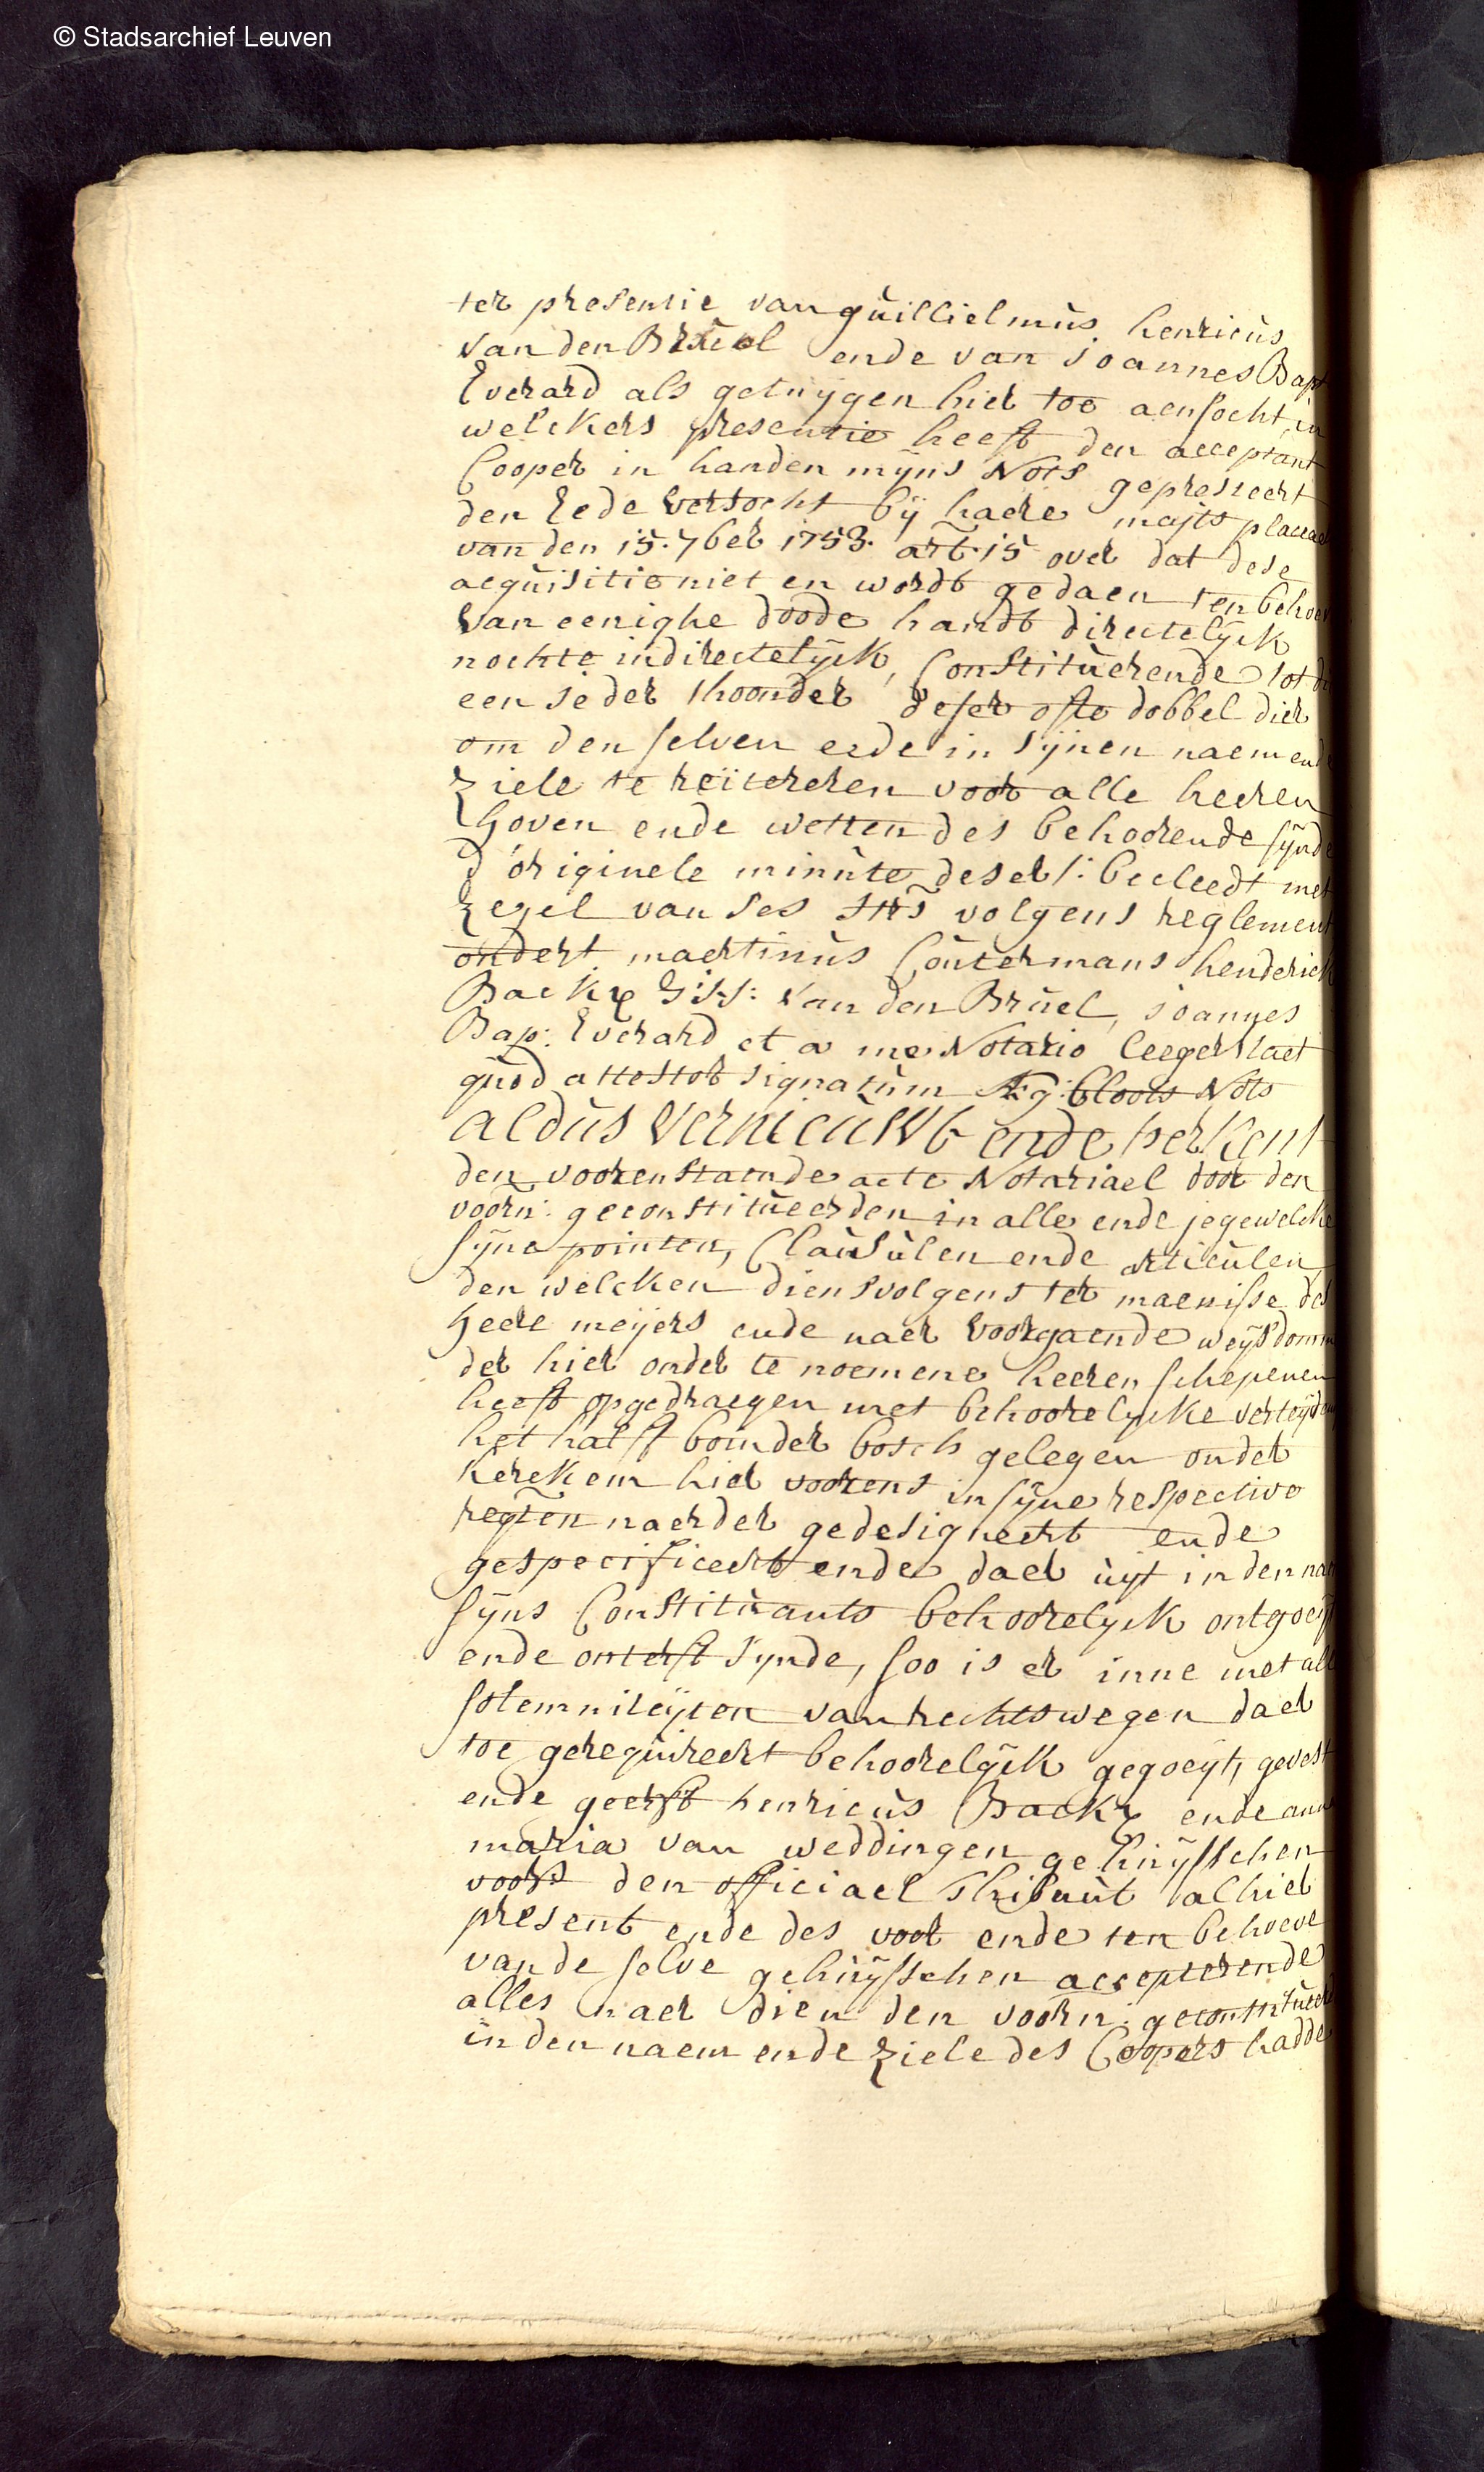 © Stadsarchief Leuven
ter presentie van guillielmus henricus
van den Brueel ende van joannes Bapt
Everard als getuygen hier toe aensocht, in
welckers presentie heeft den acceptant
Cooper in handen mijns Nots gepresteert
den Eede versocht bij haere majts placcae
van den 15. 7ber 1753. art. 15 over dat dese
acquisitie niet en wordt gedaen ten behoev
van eenighe doode handt directelijck
nochte indirectelijck, Constituerende tot d
een ieder thoonder deser ofte dobbel dier
om den selven eede in sijnen naem ende
ziele te reïtereren voor alle heeren
hoven ende wetten des behoorende sijnde
d'originele minute deser /: becleedt met
zegel van ses strs volgens reglement
ondert maertinus Coutermans henderick
Backx G: H: van den Bruel, joannes
Bap: Everard et a me Notario leegerstaet
quod attestor signatum Æg: Cloots Nots
aldus vernieuwt ende herkent
den voorenstaende acte Notariael door den
voorn: geconstitueerden in alle ende jegewelcke
sijne pointen, Clausulen ende articulen
den welcken diensvolgens ter maenisse des
heere meijers ende naer voorgaende weijsdomm
der hier onder te noemene heeren schepenen
heeft opgedraegen met behoorelijcke verteijden
het halff boinder bosch gelegen onder
kerckem hier vorens in sijne respective
regten naerder gedesigneert ende
gespecificeert ende daer uijt in den nae
sijns Constituants behoorelyck ontgoeijt
ende onterft synde, soo is er inne met alle
solemniteijten van rechtswegen daer
toe gerequireert behoorelijck gegoeijt, gevest
ende geerft henricus Backx ende anna
maria van weddingen gehuijsschen
voors den officiael Thibaut alhier
present ende des voor ende ten behoeve
van de selve gehuijsschen accepterende
alles naer dien den voorn: geconstitueerde
in den naem ende ziele des Coopers hadde